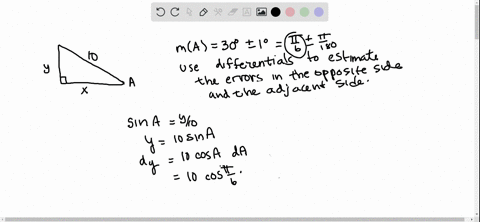 y
10
x
A
m(A) = 30° ± 1° = π/6 ± π/180
use differentials to estimate
the errors in the opposite side
and the adjacent side.
sin A = y/10
y = 10 sin A
dy = 10 cos A dA
= 10 cos π/6 .